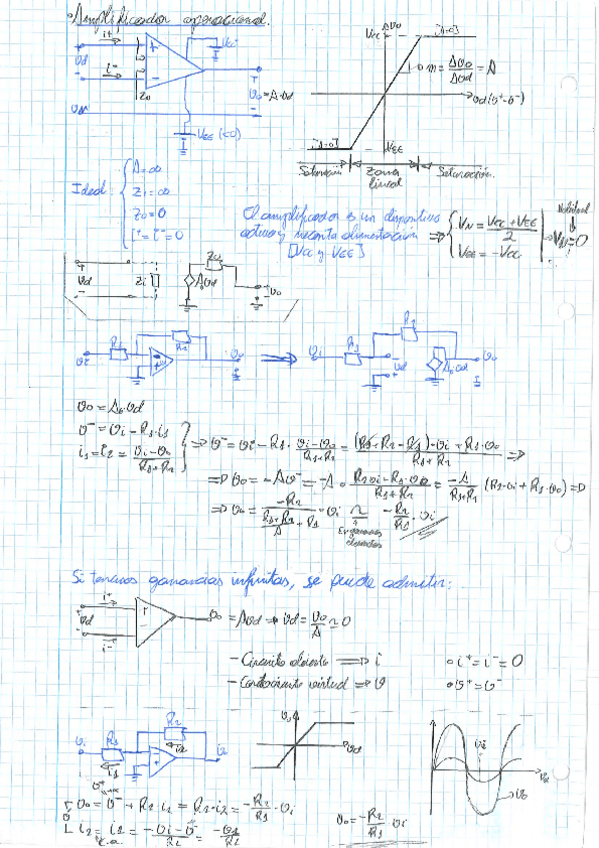 Amplificador operacional.
i+
Vcc
vd
i-
Zo
vo = A·vd
VEE (<0)
Δvo
Vcc
[A=0]
m = Δvo/Δvd = A
vd (v+-v-)
[A=0]
VEE
Saturación
Zona lineal
Saturación.
Ideal:
A=∞
Zi=∞
Zo=0
i+=i-=0
El amplificador es un dispositivo
activo y necesita alimentación
[Vcc y VEE]
⇒
VN = (VCC+VEE)/2
VEE = -VCC
VN=0
vd
Zi
Zo
A·vd
vo
vi
R1
R2
vo
⇒
vi
R1
R2
vd
A·vd
vo
vo = A·vd
v- = vi - R1·i1
i1 = i2 = (vi-vo)/(R1+R2)
⇒ v- = vi - R1·(vi-vo)/(R1+R2) = ((R1+R2-R1)·vi+R1·vo)/(R1+R2) ⇒
⇒ vo = -Av- = -A·(R2·vi+R1·vo)/(R1+R2) = -A/(R1+R2) (R2·vi+R1·vo) ⇒
⇒ vo = -R2/((R1+R2)/A+R1)·vi ≈ -R2/R1·vi
Si tenemos ganancias infinitas, se puede admitir:
i+
vd
i-
vo = Avd → vd = vo/A ≃ 0
- Circuito abierto ⇒ i
∘ i+=i-=0
- Cortocircuito virtual ⇒ v
∘ v+=v-
vi
R1
R2
i2
i1
vo
vd
vi
vo
vo = v- + R2·i2 = R2·i2 = -R2/R1·vi
vo = -R2/R1·vi